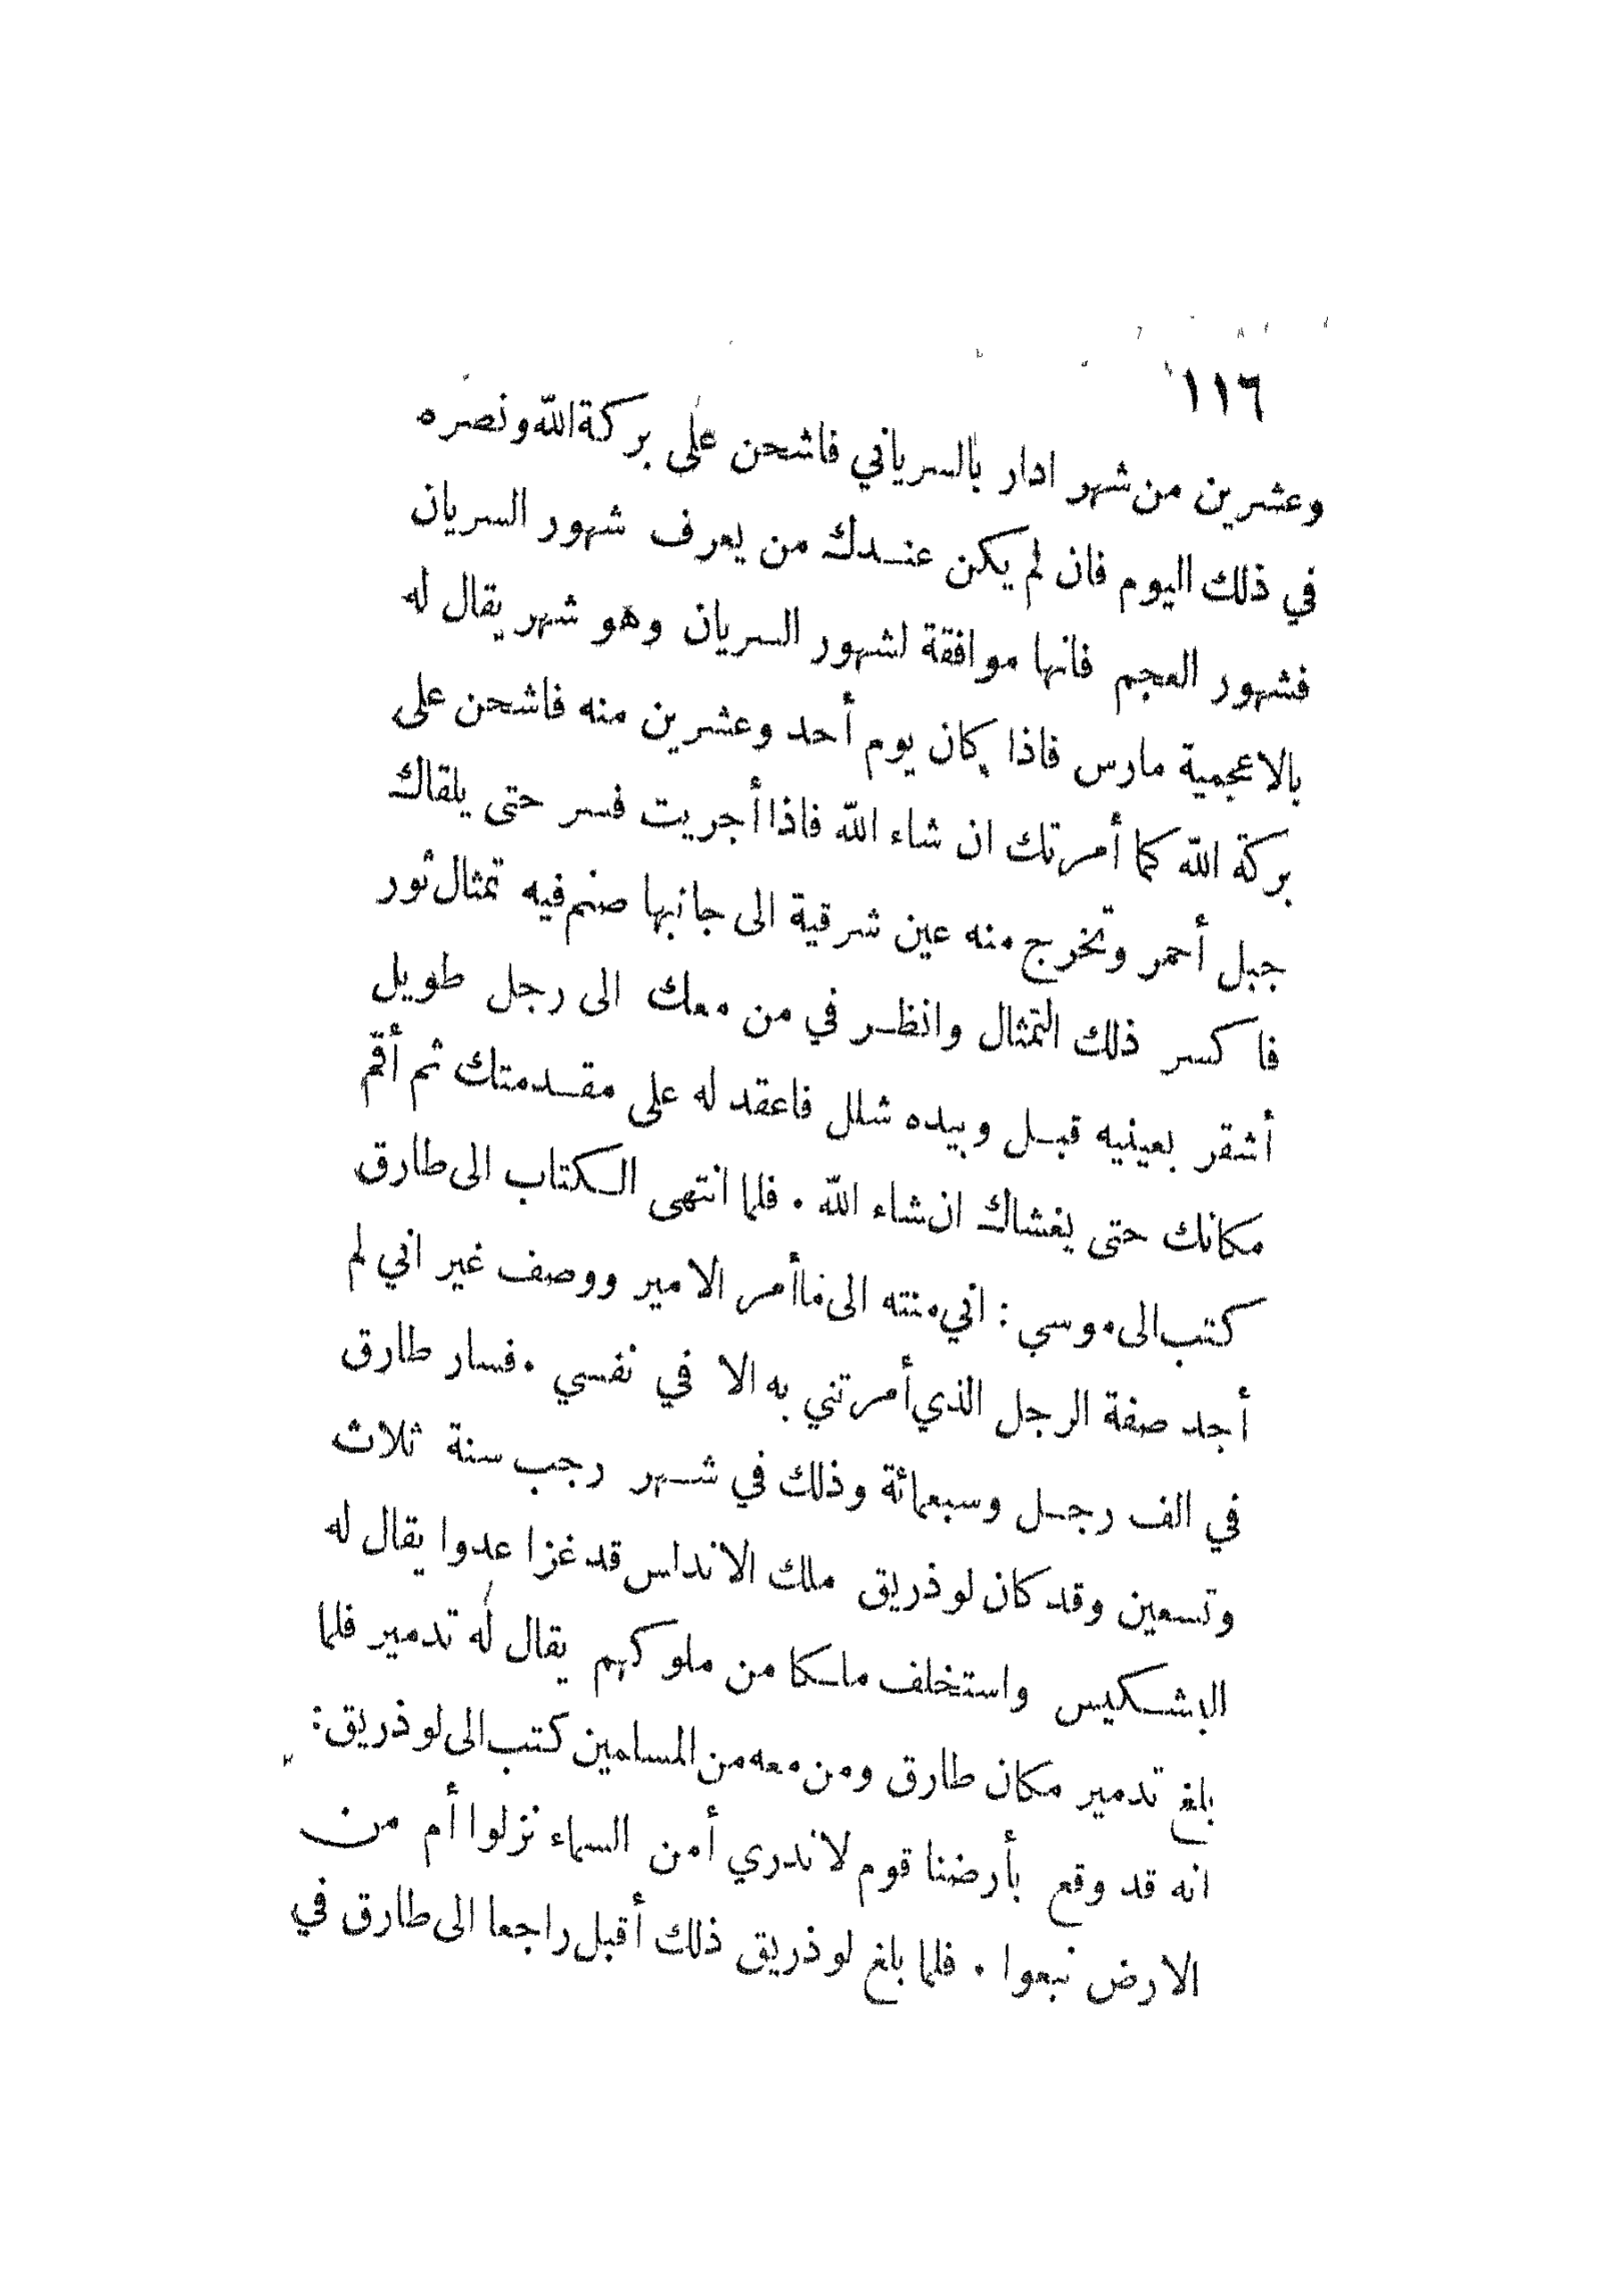 ١١٦
وعشرين من شهر ادار بالسرياني فاشحن على بركة الله ونصره
في ذلك اليوم فان لم يكن عندك من يعرف شهور السريان
فشهور العجم فانها موافقة لشهور السريان وهو شهر يقال له
بالاعجمية مارس فاذا كان يوم أحد وعشرين منه فاشحن على
بركة الله كما أمرتك ان شاء الله فاذا أجريت فسر حتى يلقاك
جبل أحمر وتخرج منه عين شرقية الى جانبها صنم فيه تمثال ثور
فاكسر ذلك التمثال وانظر في من معك الى رجل طويل
أشقر بعينيه قبل وبيده شلل فاعقد له على مقدمتك ثم أقم
مكانك حتى يغشاك ان شاء الله . فلما انتهى الكتاب الى طارق
كتب الى موسي : اني منته الى ماأمر الامير ووصف غير اني لم
أجد صفة الرجل الذي أمرتني به الا في نفسي . فسار طارق
في الف رجل وسبعمائة وذلك في شهر رجب سنة ثلاث
وتسعين وقد كان لوذريق ملك الاندلس قد غزا عدوا يقال له
البشكيس واستخلف ملكا من ملوكهم يقال له تدمير فلما
بلغ تدمير مكان طارق ومن معه من المسلمين كتب الى لوذريق :
انه قد وقع بأرضنا قوم لاندري أمن السماء نزلوا أم من
الارض نبعوا . فلما بلغ لوذريق ذلك أقبل راجعا الى طارق في